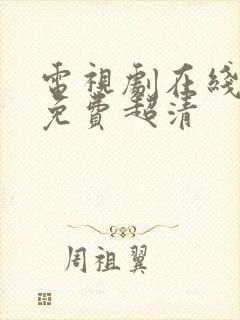 電視劇在綫
免費超清
周祖翼